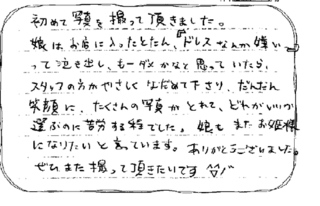 初めて写真を撮って頂きました。
娘はお店に入ったとたん、『ドレスなんか嫌い』
って泣き出し、もーダメかなと思っていたら、
スタッフの方がやさしくなだめて下さり、だんだん
笑顔に、たくさんの写真がとれて、どれがいいか
選ぶのに苦労する程でした。娘もまたお姫様
になりたいと言っています。ありがとうございました。
ぜひまた撮って頂きたいです^^